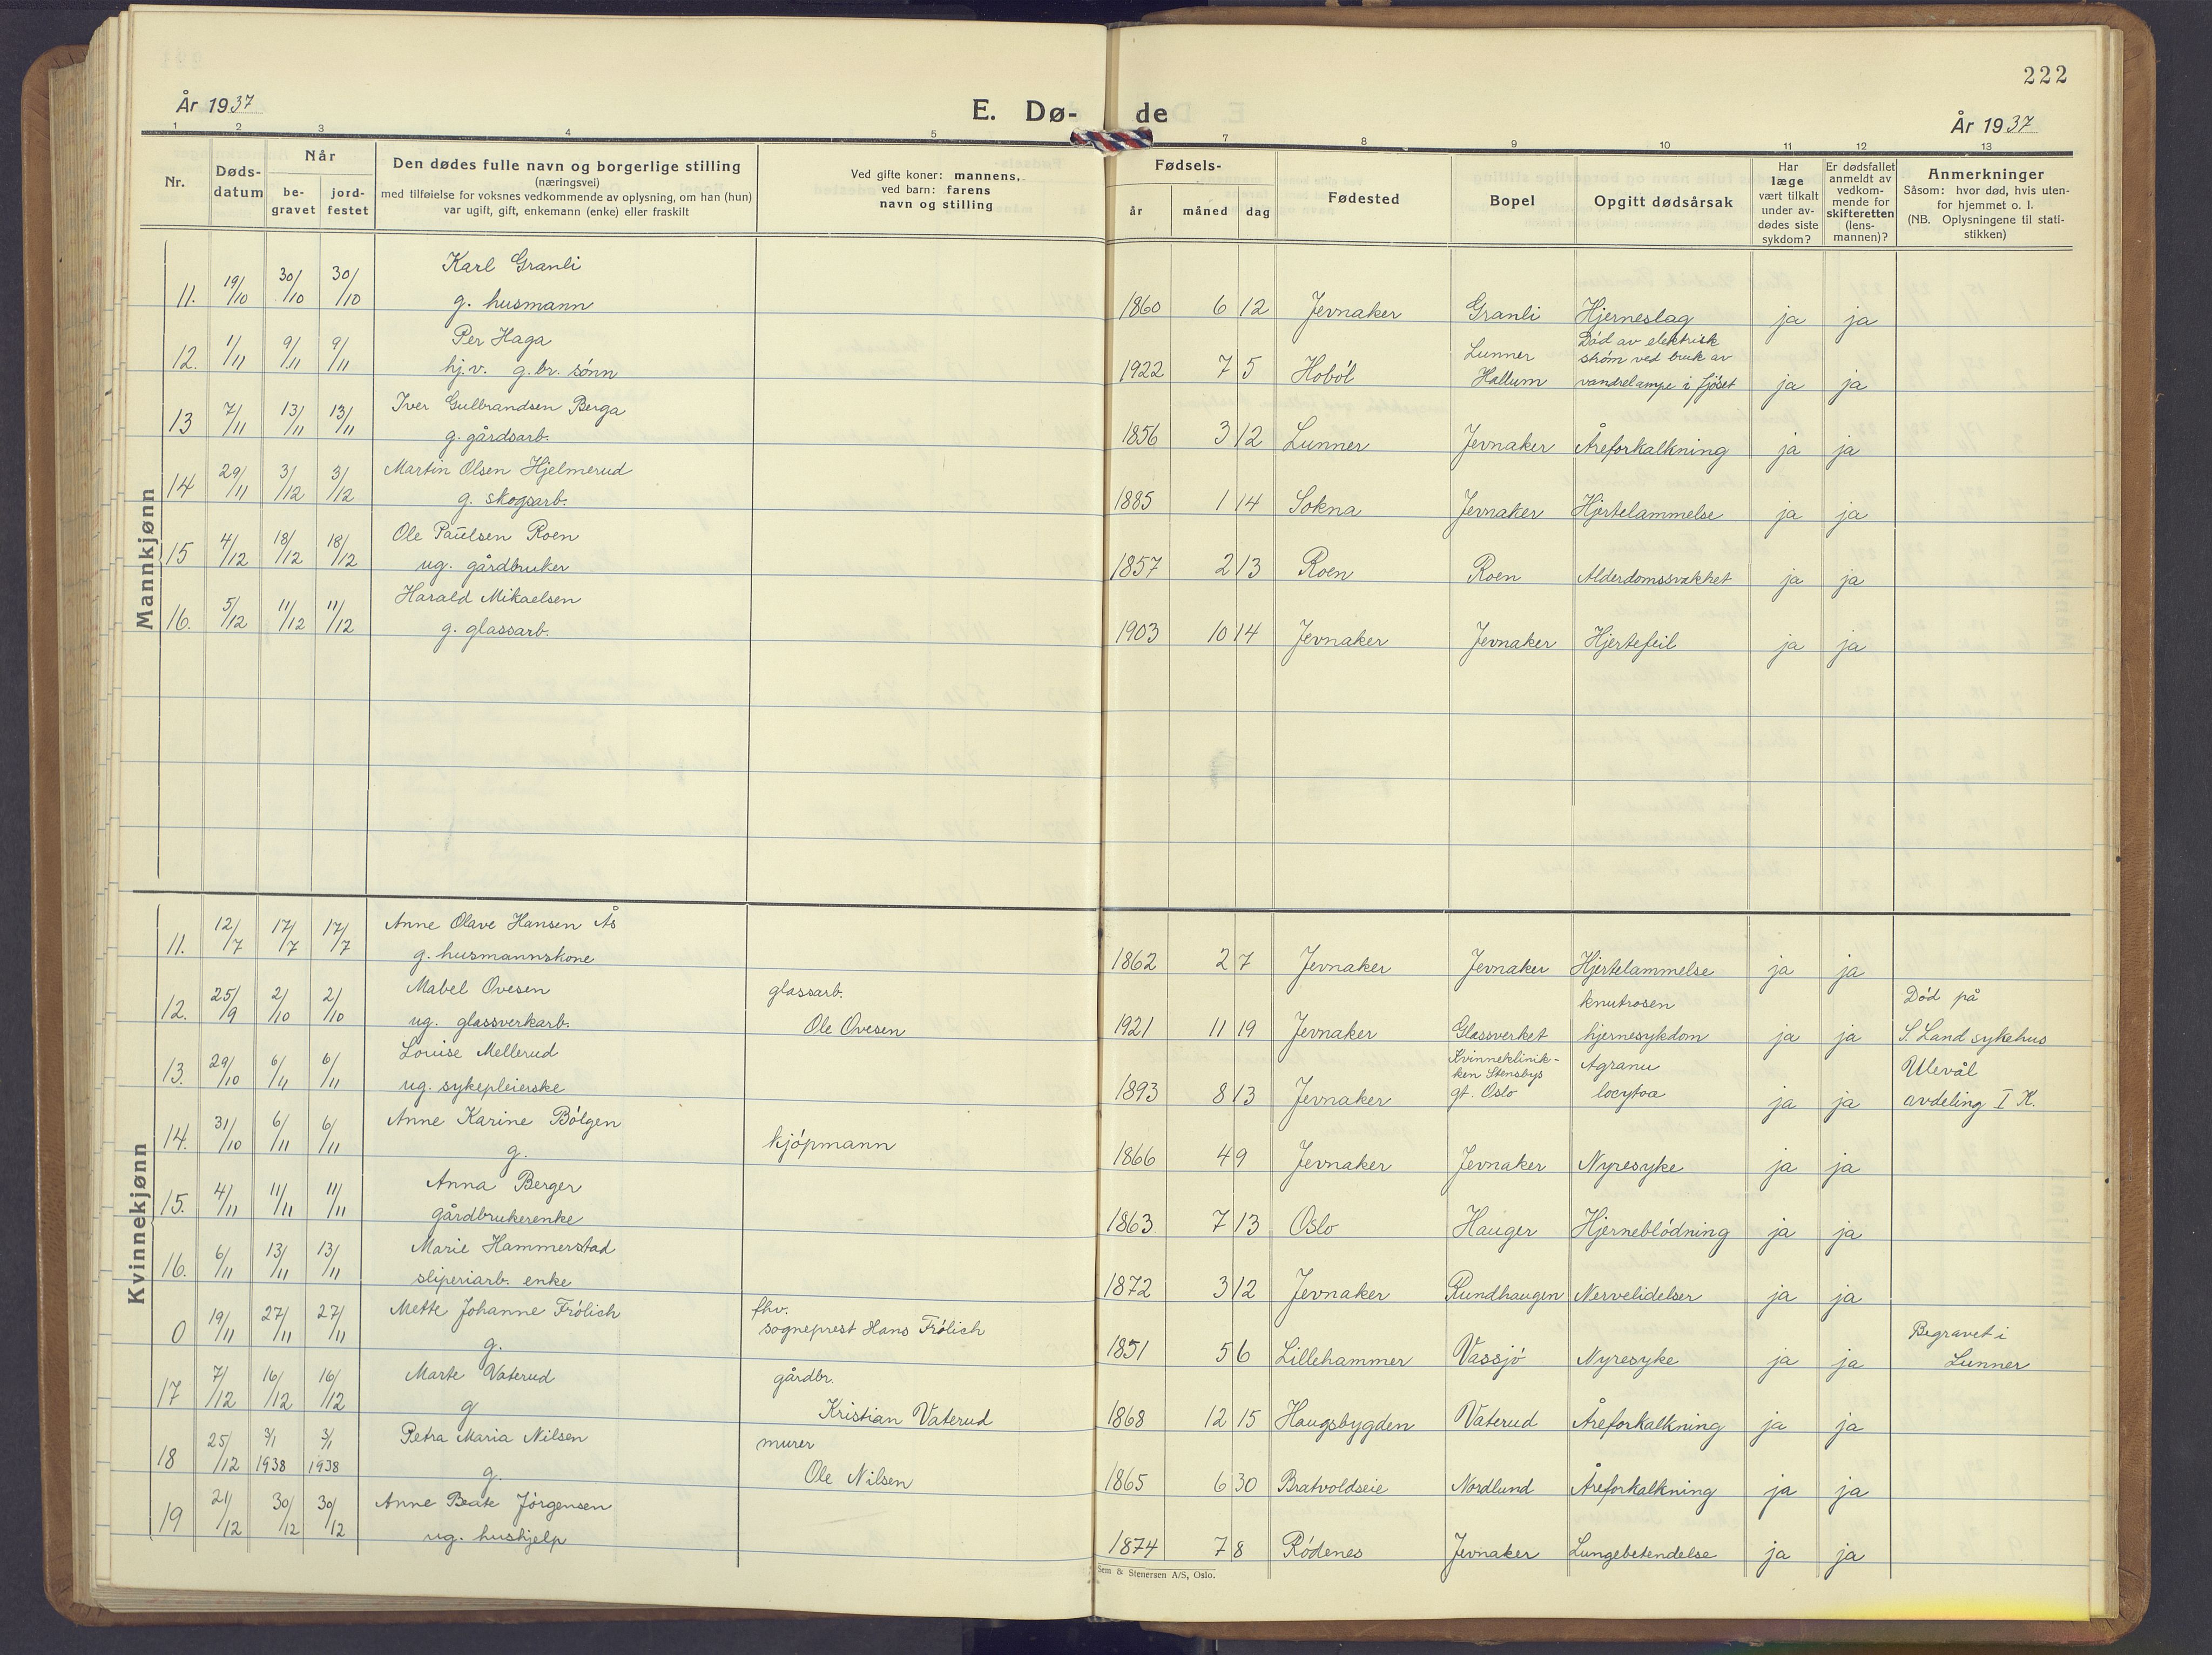 222
År 1937
E. Dø-
de
År 1937
1 2 3 4 5 7 8 9 10 11 12 13
Nr.
Døds-
datum
Når
be-
gravet
jord-
festet
Den dødes fulle navn og borgerlige stilling
(næringsvei)
med tilføielse for voksnes vedkommende av oplysning, om han (hun)
var ugift, gift, enkemann (enke) eller fraskilt
Ved gifte koner: mannens,
ved barn: farens
navn og stilling
Fødsels-
år måned dag
Fødested
Bopel
Opgitt dødsårsak
Har
læge
vært tilkalt
under av-
dødes siste
sykdom?
Er dødsfallet
anmeldt av
vedkom-
mende for
skifteretten
(lens-
mannen)?
Anmerkninger
Såsom: hvor død, hvis uten-
for hjemmet o. l.
(NB. Oplysningene til stati-
stikken)
Mannkjønn
11. 19/10 30/10 30/10 Karl Granli
g. husmann
1860 6 12 Jevnaker Granli Hjerneslag ja ja
12. 1/11 9/11 9/11 Per Haga
hj.v. g.br. sønn
1922 7 5 Hobøl Lunner
Hallum
Død av elektrisk
strøm ved bruk av
vandrelampe i fjøset ja ja
13 7/11 13/11 13/11 Iver Gulbrandsen Berga
g. gårdsarb.
1856 3 12 Lunner Jevnaker Åreforkalkning ja ja
14 29/11 3/12 3/12 Martin Olsen Hjelmerud
g. skogsarb.
1885 1 14 Sokna Jevnaker Hjertelammelse ja ja
15 4/12 18/12 18/12 Ole Paulsen Roen
ug. gårdbruker
1857 2 13 Roen Roen Alderdomssvakhet ja ja
16. 5/12 11/12 11/12 Harald Mikaelsen
g. glassarb.
1903 10 14 Jevnaker Jevnaker Hjertefeil ja ja
Kvinnekjønn
11. 12/7 17/7 17/7 Anne Olave Hansen Ås
g. husmannskone
1862 2 7 Jevnaker Jevnaker Hjertelammelse ja ja
12. 25/9 2/10 2/10 Mabel Ovesen
ug. glassverkarb.
glassarb.
Ole Ovesen
1921 11 19 Jevnaker Glassverket knutrosen
hjernesykdom ja ja Død på
S. Land sykehus
13. 29/10 6/11 6/11 Louise Mellerud
ug. sykepleierske
1893 8 13 Jevnaker Kvinneklinik-
ken Stensbys
gt. Oslo
Agranu
locytoa ja ja Ulevål
avdeling I K.
14. 31/10 6/11 6/11 Anne Karine Bølgen
g.
kjøpmann
1866 4 9 Jevnaker Jevnaker Nyresyke ja ja
15. 4/11 11/11 11/11 Anna Berger
gårdbrukerenke
1863 7 13 Oslo Hauger Hjerneblødning ja ja
16. 6/11 13/11 13/11 Marie Hammerstad
sliperiarb. enke
1872 3 12 Jevnaker Rundhaugen Nervelidelser ja ja
0 19/11 27/11 27/11 Mette Johanne Frölich
g.
fhv.
sogneprest Hans Frölich
1851 5 6 Lillehammer Vassjø Nyresyke ja ja Begravet i
Lunner
17 7/12 16/12 16/12 Marte Vaterud
g
gårdbr.
Kristian Vaterud
1868 12 15 Haugsbygden Vaterud Åreforkalkning ja ja
18 25/12 3/1 1938 3/1 1938 Petra Maria Nilsen
g.
murer
Ole Nilsen
1865 6 30 Bratvoldseie Nordlund Åreforkalkning ja ja
19 21/12 30/12 30/12 Anne Beate Jørgensen
ug. hushjelp
1874 7 8 Rødenes Jevnaker Lungebetendelse ja ja
Sem & Stenersen A/S, Oslo.